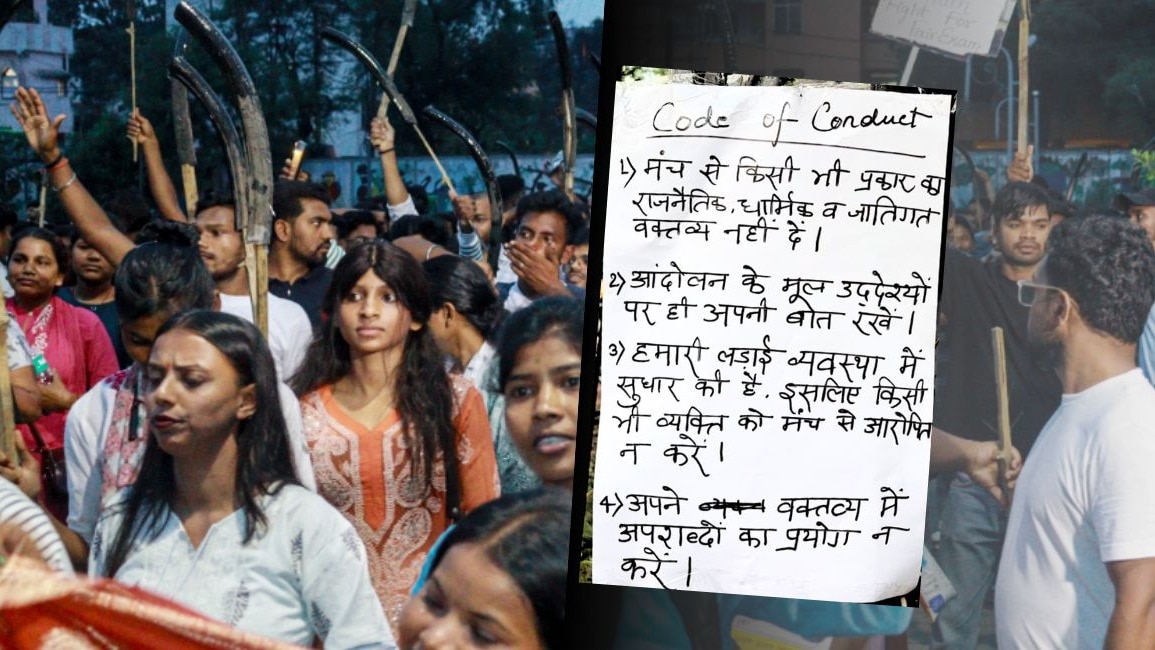 fight for
fair Exam
Code of Conduct
1) मंच से किसी भी प्रकार का
राजनैतिक, धार्मिक व जातिगत
वक्तव्य नहीं दें।
2) आंदोलन के मूल उद्देश्यों
पर ही अपनी बात रखें।
3) हमारी लड़ाई व्यवस्था में
सुधार की है, इसलिए किसी
भी व्यक्ति को मंच से आरोपित
न करें।
4) अपने वक्तव्य में
अपशब्दों का प्रयोग न
करें।